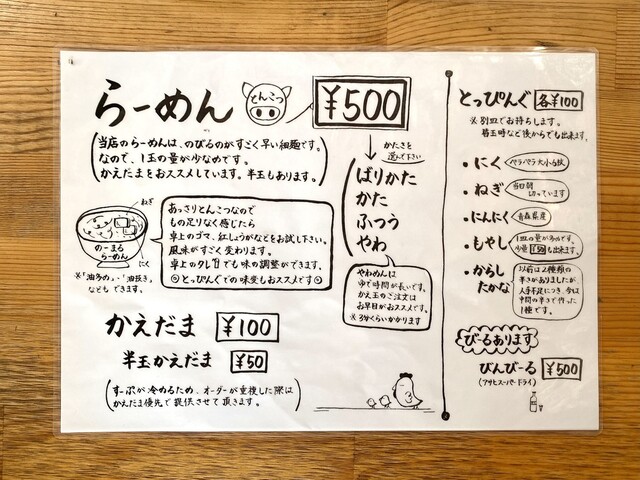 らーめん
とんこつ
¥500
当店のらーめんは、のびるのがすごく早い細麺です。
なので、1玉の量が少なめです。
かえだまをおススメしています。半玉もあります。
かたさを
選んで下さい
ばりかた
かた
ふつう
やわ
やわめんは
ゆで時間が長いです。
かえ玉のご注文は
お早目がおススメです。
※3分くらいかかります
ねぎ
のーまる
らーめん
にく
※「油多め」・「油抜き」
などもできます。
あっさりとんこつなので
もの足りなく感じたら
卓上のゴマ、紅しょうがなどをお試し下さい。
風味がすごく変わります。
卓上のタレでも味の調整ができます。
◎とっぴんぐでの味変もおススメです◎
かえだま ¥100
半玉かえだま ¥50
すーぷが冷めるため、オーダーが重複した際は
かえだま優先で提供させて頂きます。
とっぴんぐ 各¥100
※別皿でお持ちします。
替玉時など後からでも出来ます。
・にく ペラペラ大小6枚
・ねぎ 当日朝
切っています
・にんにく 青森県産
・もやし 1皿の量が多めです。
少量¥50も出来ます。
・からし
たかな
以前は2種類の
辛さがありましたが
人手不足につき、今は
中間の辛さで作った
1種です。
びーるあります
びんびーる ¥500
(アサヒスーパードライ)